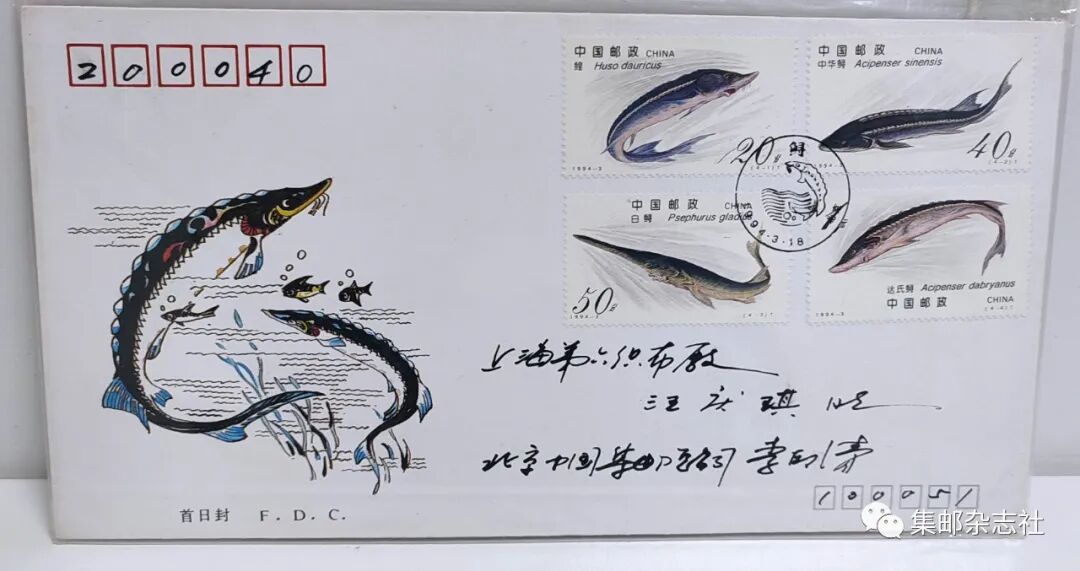 200040
中国邮政 CHINA
鳇 Huso dauricus
20分
1994-3
(4-1)T
中国邮政 CHINA
中华鲟 Acipenser sinensis
40分
(4-2)T
鲟
1994·3·18
中国邮政 CHINA
白鲟 Psephurus gladius
50分
1994-3
(4-3)T
达氏鲟 Acipenser dabryanus
中国邮政 CHINA
1994-3
(4-4)T
上海第六织布厂
汪庆琪
北京中国集邮总公司 李印清
100051
首日封 F.D.C.
集邮杂志社